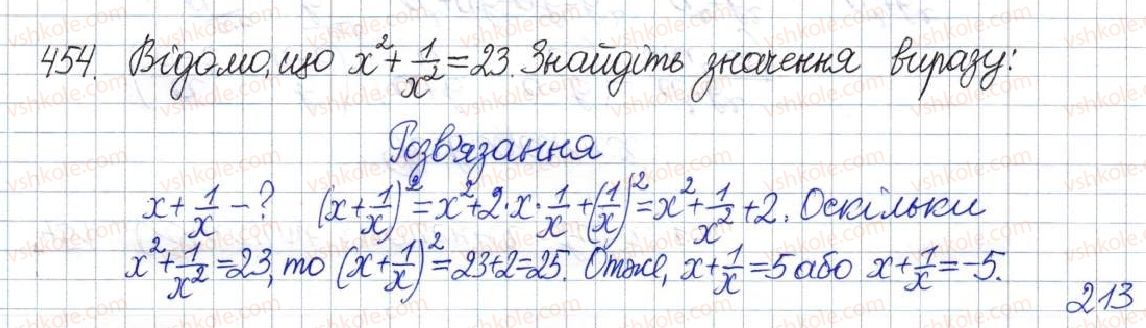 454. Відомо, що x² + 1/x² = 23. Знайдіть значення виразу:
Розв'язання
x + 1/x - ? (x + 1/x)² = x² + 2·x·1/x + (1/x)² = x² + 1/x² + 2. Оскільки
x² + 1/x² = 23, то (x + 1/x)² = 23+2=25. Отже, x + 1/x = 5 або x + 1/x = -5.
213